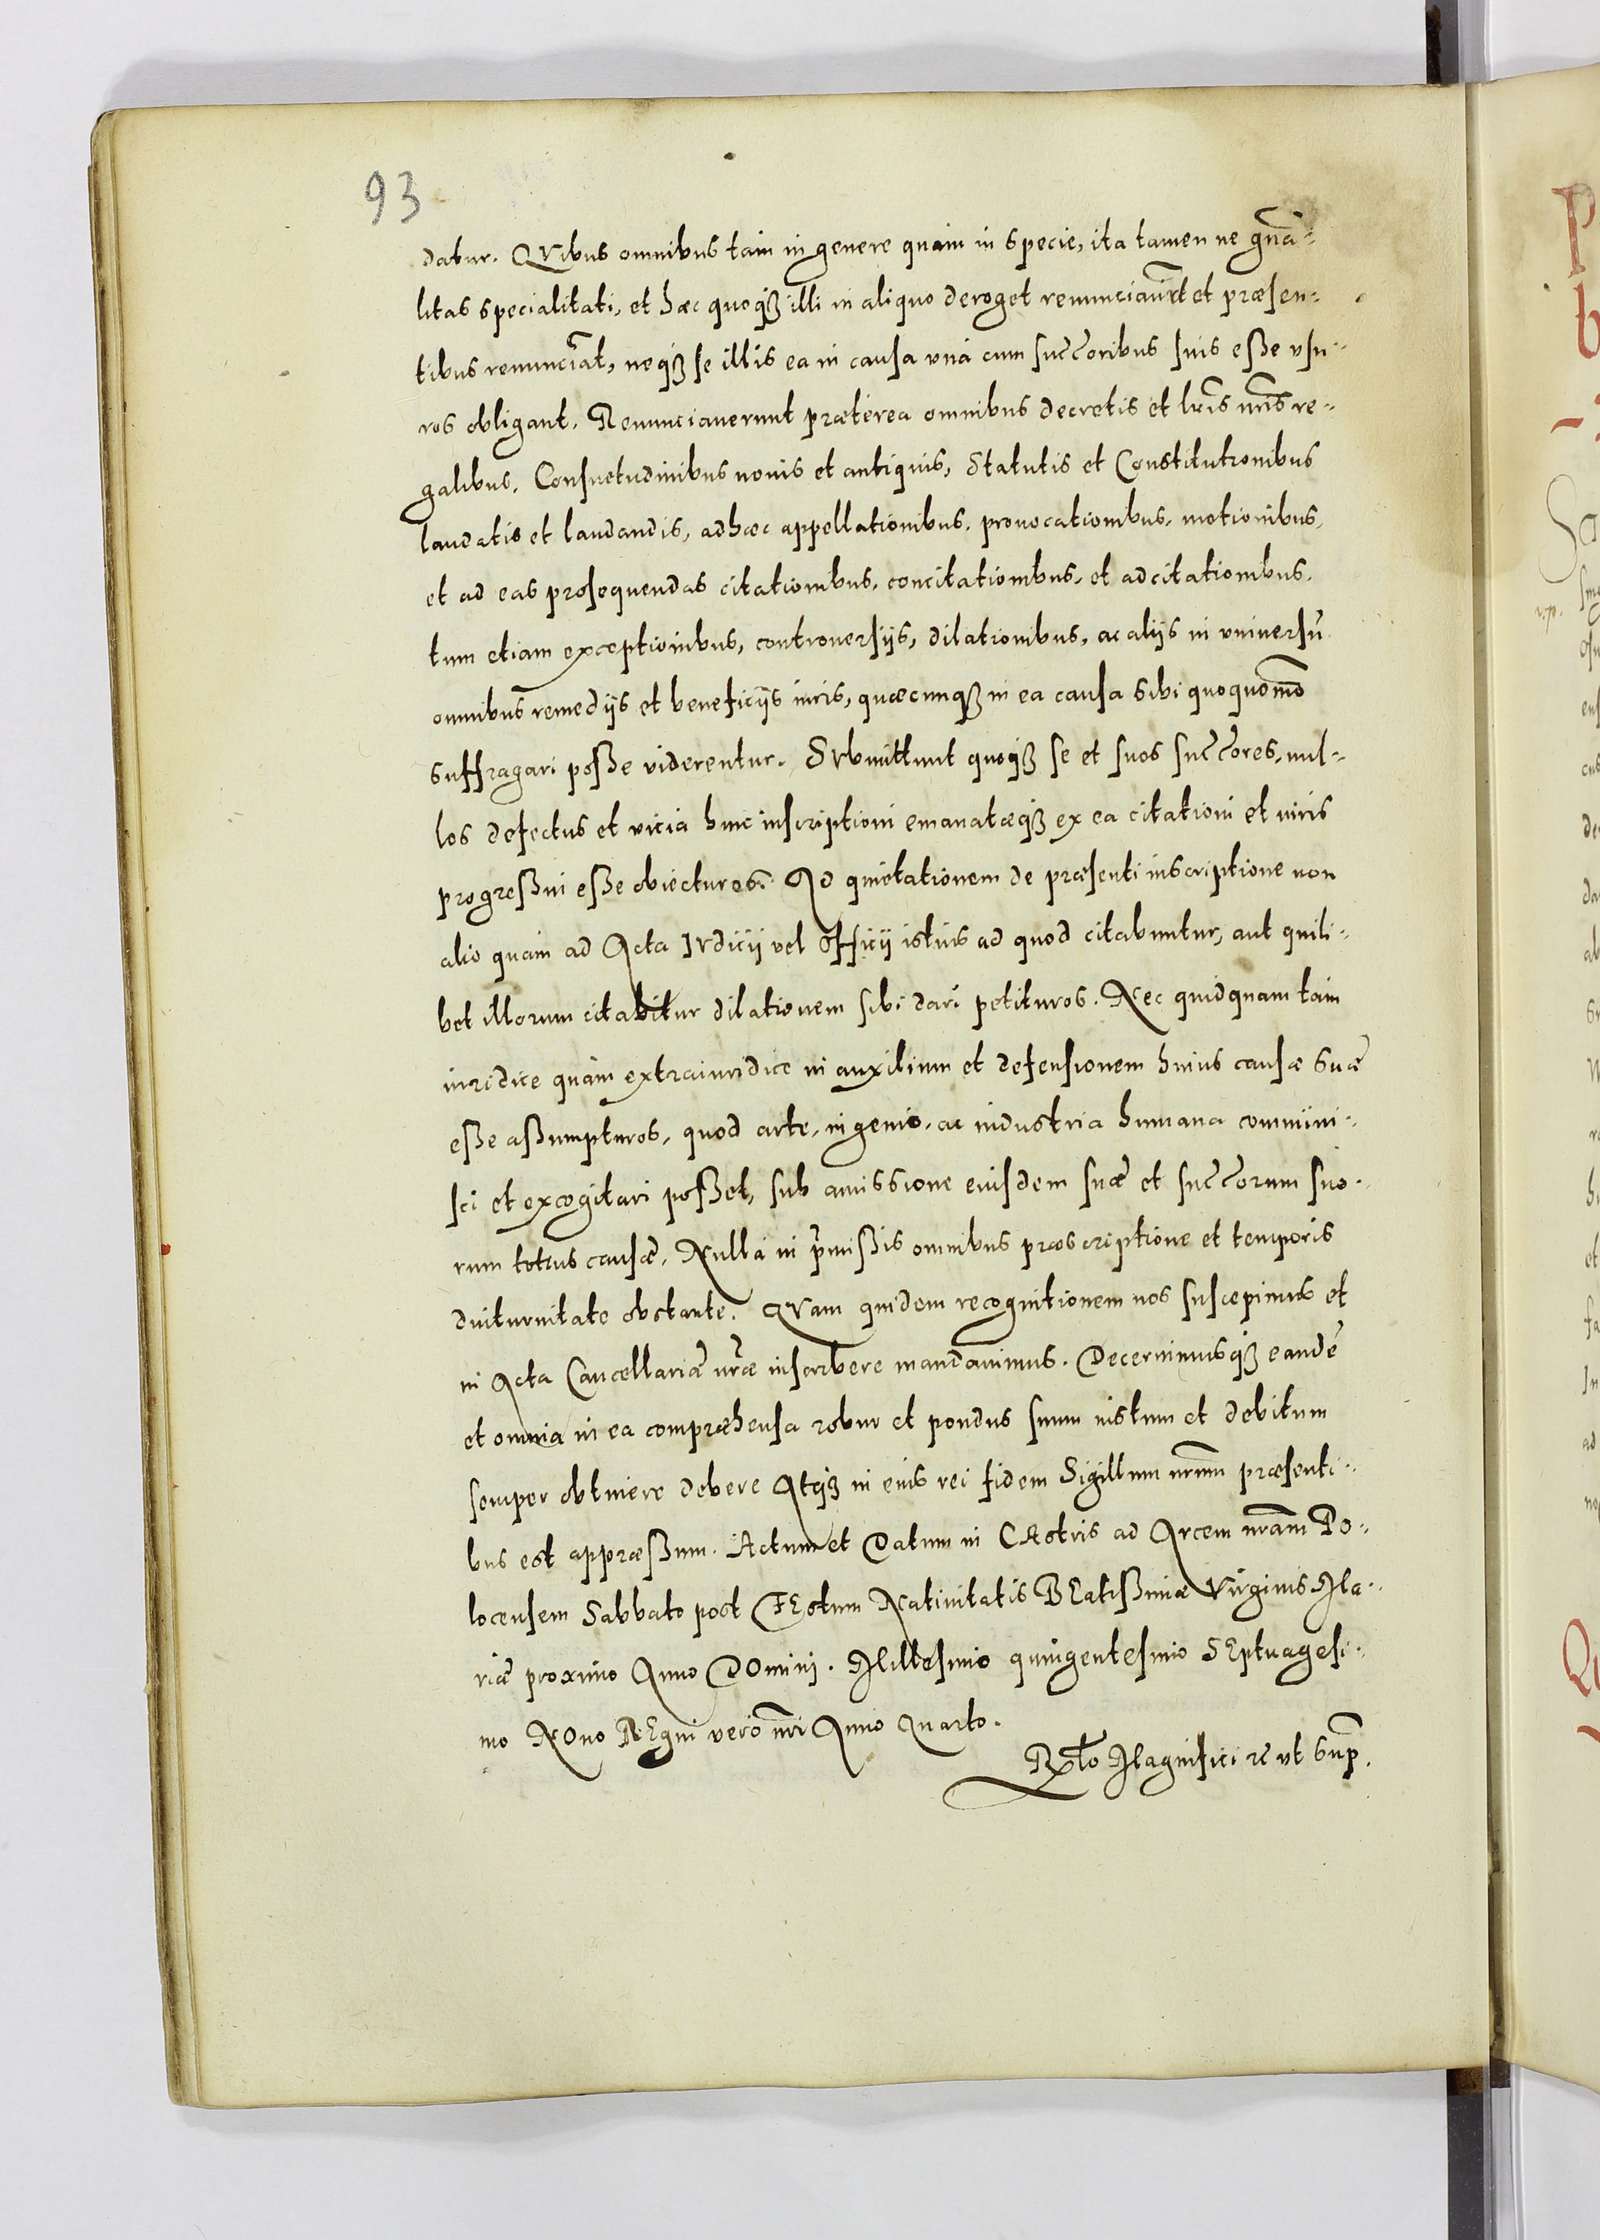 93
dabur. QVibus omnibus tam in genere quam in specie, ita tamen ne gn̄a-
litas specialitati, et hæc quoqꝫ illi in aliquo deroget renunciaūt et præsen-
tibus renunciāt, neqꝫ se illis ea in causa vna cum succ̄oribus suis eße vsu-
ros obligant. Renunciauerunt præterea omnibus decretis et lr̄is nr̄is re-
galibus. Consuetudinibus nouis et antiquis, Statutis et Constitutionibus
laudatis et laudandis, adhæc appellationibus, prouocationibus, motionibus,
et ad eas prosequendas citationibus, concitationibus, et adcitationibus,
tum etiam exceptionibus, controuersijs, dilationibus, ac alijs in vniuersū
omnibus remedijs et beneficijs iuris, quæcunqꝫ in ea causa sibi quoquomō
suffragari poße viderentur. SVbmittunt quoqꝫ se et suos succ̄ores, nul-
los defectus et vicia huic inscriptioni emanatæqꝫ ex ea citationi et iuris
progreßui eße obiecturos. Ad quietationem de præsenti inscriptione non
alio quam ad Acta IVdicij vel Officij istius ad quod citabuntur, aut quili-
bet illorum citabitur dilationem sibi dari petituros. Nec quidquam tam
iuridice quam extraiuridice in auxilium et defensionem huius causæ suæ
eße aßumpturos, quod arte, ingenio, ac industria humana commini-
sci et excogitari poßet, sub amissione eiusdem suæ et succ̄orum suo-
rum totius causæ. Nulla in p̄mißis omnibus præscriptione et temporis
diuturnitate obstante. QVam quidem recognitionem nos suscepimus et
in Acta Cancellariæ nr̄æ inscribere mandauimus. Decernimusqꝫ eandē
et omnia in ea compræhensa robur et pondus suum iustum et debitum
semper obtinere debere Atqꝫ in eius rei fidem Sigillum nr̄um præsenti-
bus est appræßum. Actum et Datum in CAstris ad Arcem nr̄am Po-
locensem Sabbato post FEstum Natiuitatis BEatißimæ Virginis Ma-
riæ proximo Anno DOmini. Millesimo quingentesimo SEptuagesi-
mo NOno REgni vero nr̄i Anno Quarto.
Rl̄o Magnifici etc ut sup̄.